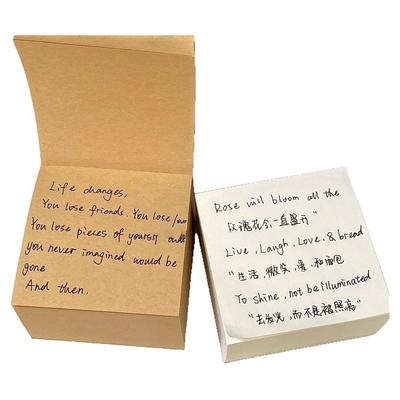 Life changes,
You lose friends. You lose lov
You lose pieces of yourself
you never imagined would be
gone
And then.
Rose will bloom all the
玫瑰花会一直盛开"
Live, Laugh, Love, & bread
"生活,微笑,爱,和面包
To shine, not be illuminated
"去发光,而不是被照亮"